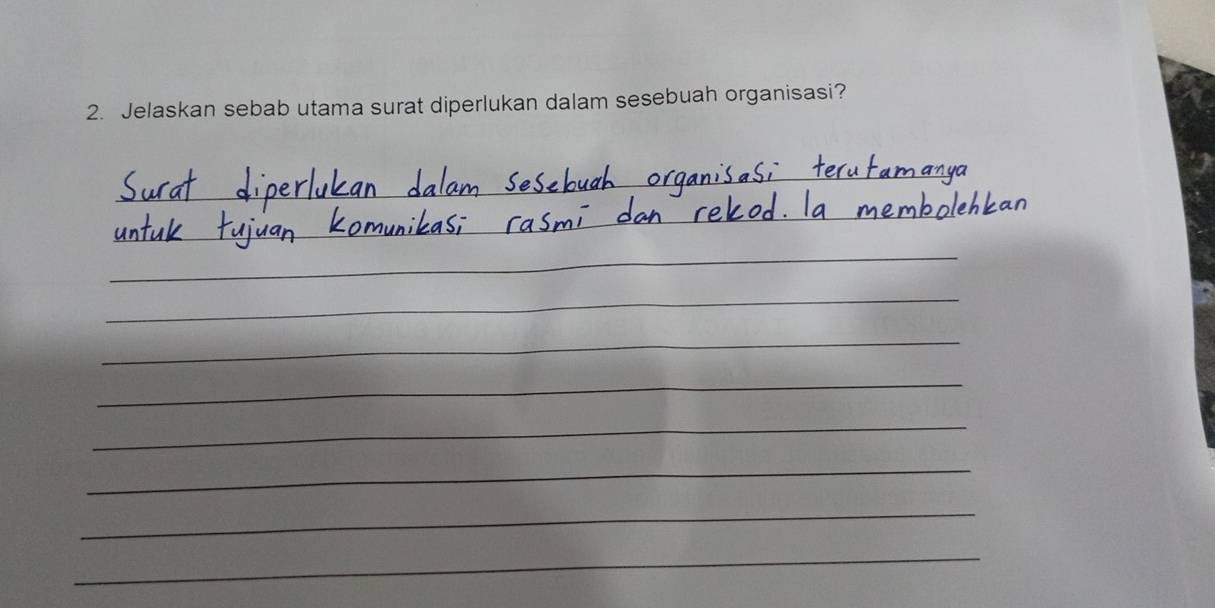 2. Jelaskan sebab utama surat diperlukan dalam sesebuah organisasi?
Surat diperlukan dalam sesebuah organisasi terutamanya
untuk tujuan komunikasi rasmi dan rekod. Ia membolehkan